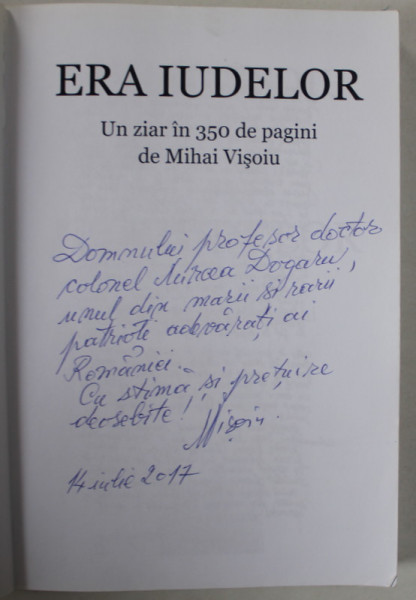 ERA IUDELOR
Un ziar în 350 de pagini
de Mihai Vişoiu
Domnului profesor doctor
colonel Mircea Dogaru,
unul din marii și rarii
patrioți adevărați ai
României.
Cu stimă și prețuire
deosebite! Vișoiu.
14 iulie 2017